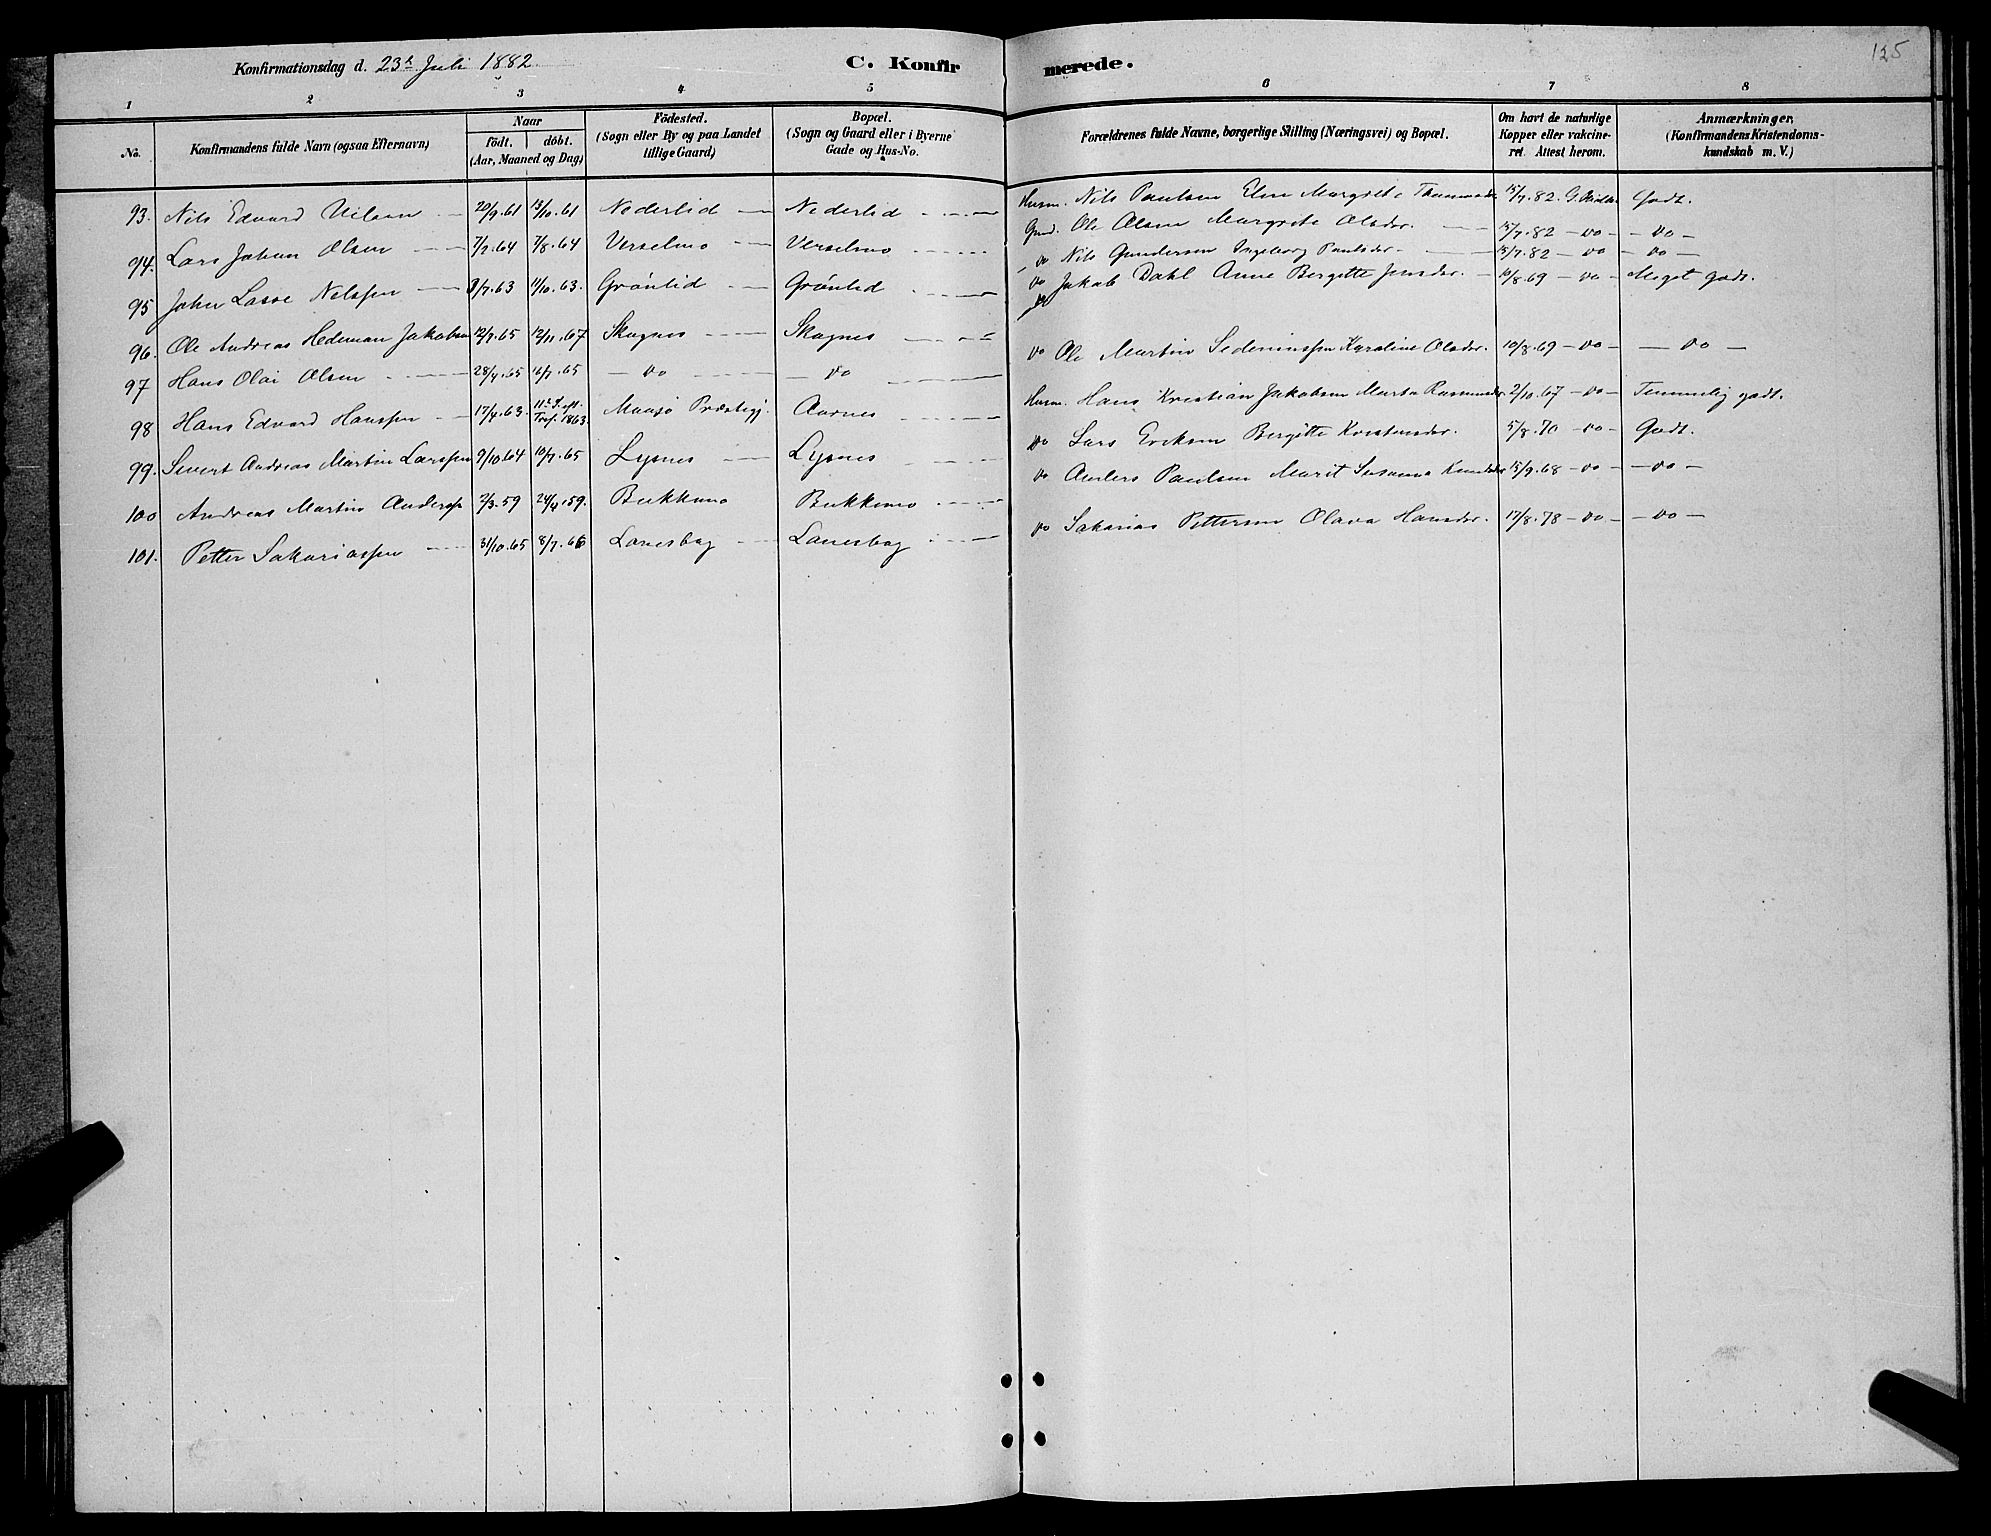 Konfirmationsdag d. 23de Juli 1882. C. Konfirmerede. 125
1 2 3 4 5 6 7 8
No. Konfirmandens fulde Navn (ogsaa Efternavn) Naar født. døbt. (Aar, Maaned og Dag) Fødested. (Sogn eller By og paa Landet tillige Gaard) Bopæl. (Sogn og Gaard eller i Byerne Gade og Hus-No. Forældrenes fulde Navne, borgerlige Stilling (Næringsvei) og Bopæl. Om havt de naturlige Kopper eller vakcineret. Attest herom. Anmærkninger, (Konfirmandens Kristendomskundskab m. V.)
93. Nils Edvard Nilsen 20/9.61 13/10.61 Nederlid Nederlid Husm. Nils Paulsen Elen Margrete 15/7.82. Godt.
94. Lars Johan Olsen 7/7.64 7/8.64 Verselmo Verselmo Gmd. Ole Olsen Margrete Olsdr. 15/7.82 - do - - do -
95 Johan Lasse Nelssen 9/7.63 11/10.63. Grønlid Grønlid do Nils Gundersen Ingeborg Paulsdr. 15/7.82 - do - do -
96. Ole Andreas Hedeman Jakobsen 12/7.65 12/11.67 Skognes Skognes do Jakob Dahl Anne Bergitte Jensdr. 10/8.69 - do - Meget godt.
97 Hans Olai Olsen 28/4.65 16/7.65 - do - - do do Ole Martin Karoline Olsdr. 10/8.69 - do - - do -
98 Hans Edvard Hanssen 17/4.63. 11te Sept. 1863. Maasø Præstegj. Aarnes Husm. Hans Kristian Jakobsen Marta Rasmusdr 2/10.67 - do - Temmelig godt.
99. Sivert Andreas Martin Larssen 9/10.64 10/7.65 Lysnes Lysnes do Lars Eriksen Bergitte Kristensdr. 5/8.70 - do - Godt.
100 Andreas Martin Anderssen 2/3.59 24/4.59. Bukkemo Bukkemo do Anders Paulsen Marit Susanna Knudsdr 15/9.68 - do - - do -
101. Petter Sakariassen 31/10.65 8/7.66 Lanesbog Lanesbog do Sakarias Pettersen Olava Hansdr. 17/8.78 - do - - do -